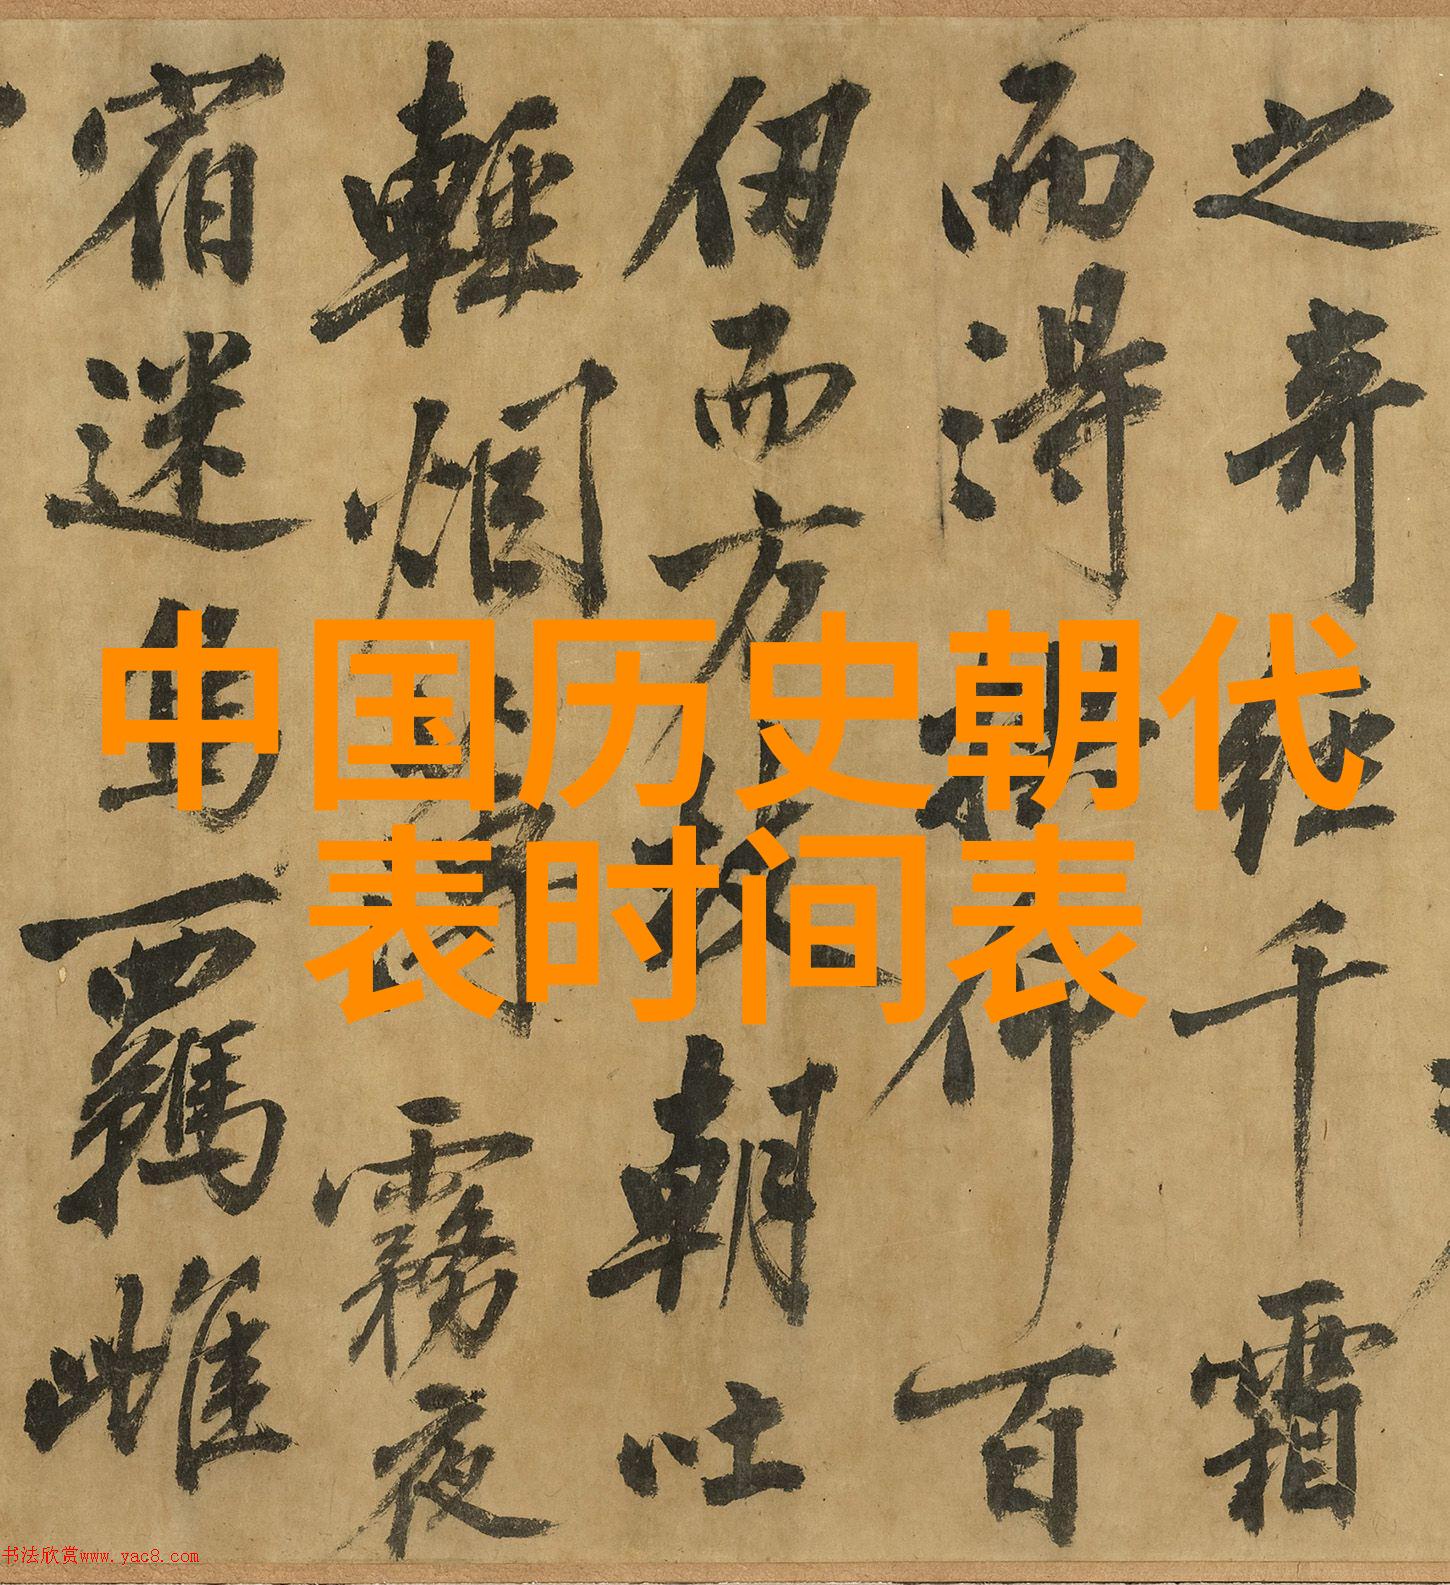 中国历史朝代
表时间表
之奇經千霜
而得拱仰百
仞而方枝朝吐
輕烟薄霧夜
宿迷鳥羈雌
书法欣赏www.yac8.com